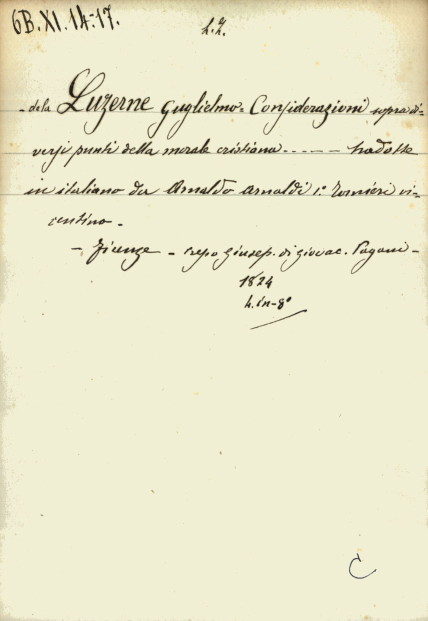 6B.XI.14-17.
L.Z.
- de la Luzerne Guglielmo = Considerazioni sopra di-
versi punti della morale cristiana ..... tradotte
in italiano da Arnaldo Arnaldi 1.° Tornieri vi-
centino -
- Firenze - Giusep. di Giovac. Pagani -
1824
4. in-8°
C